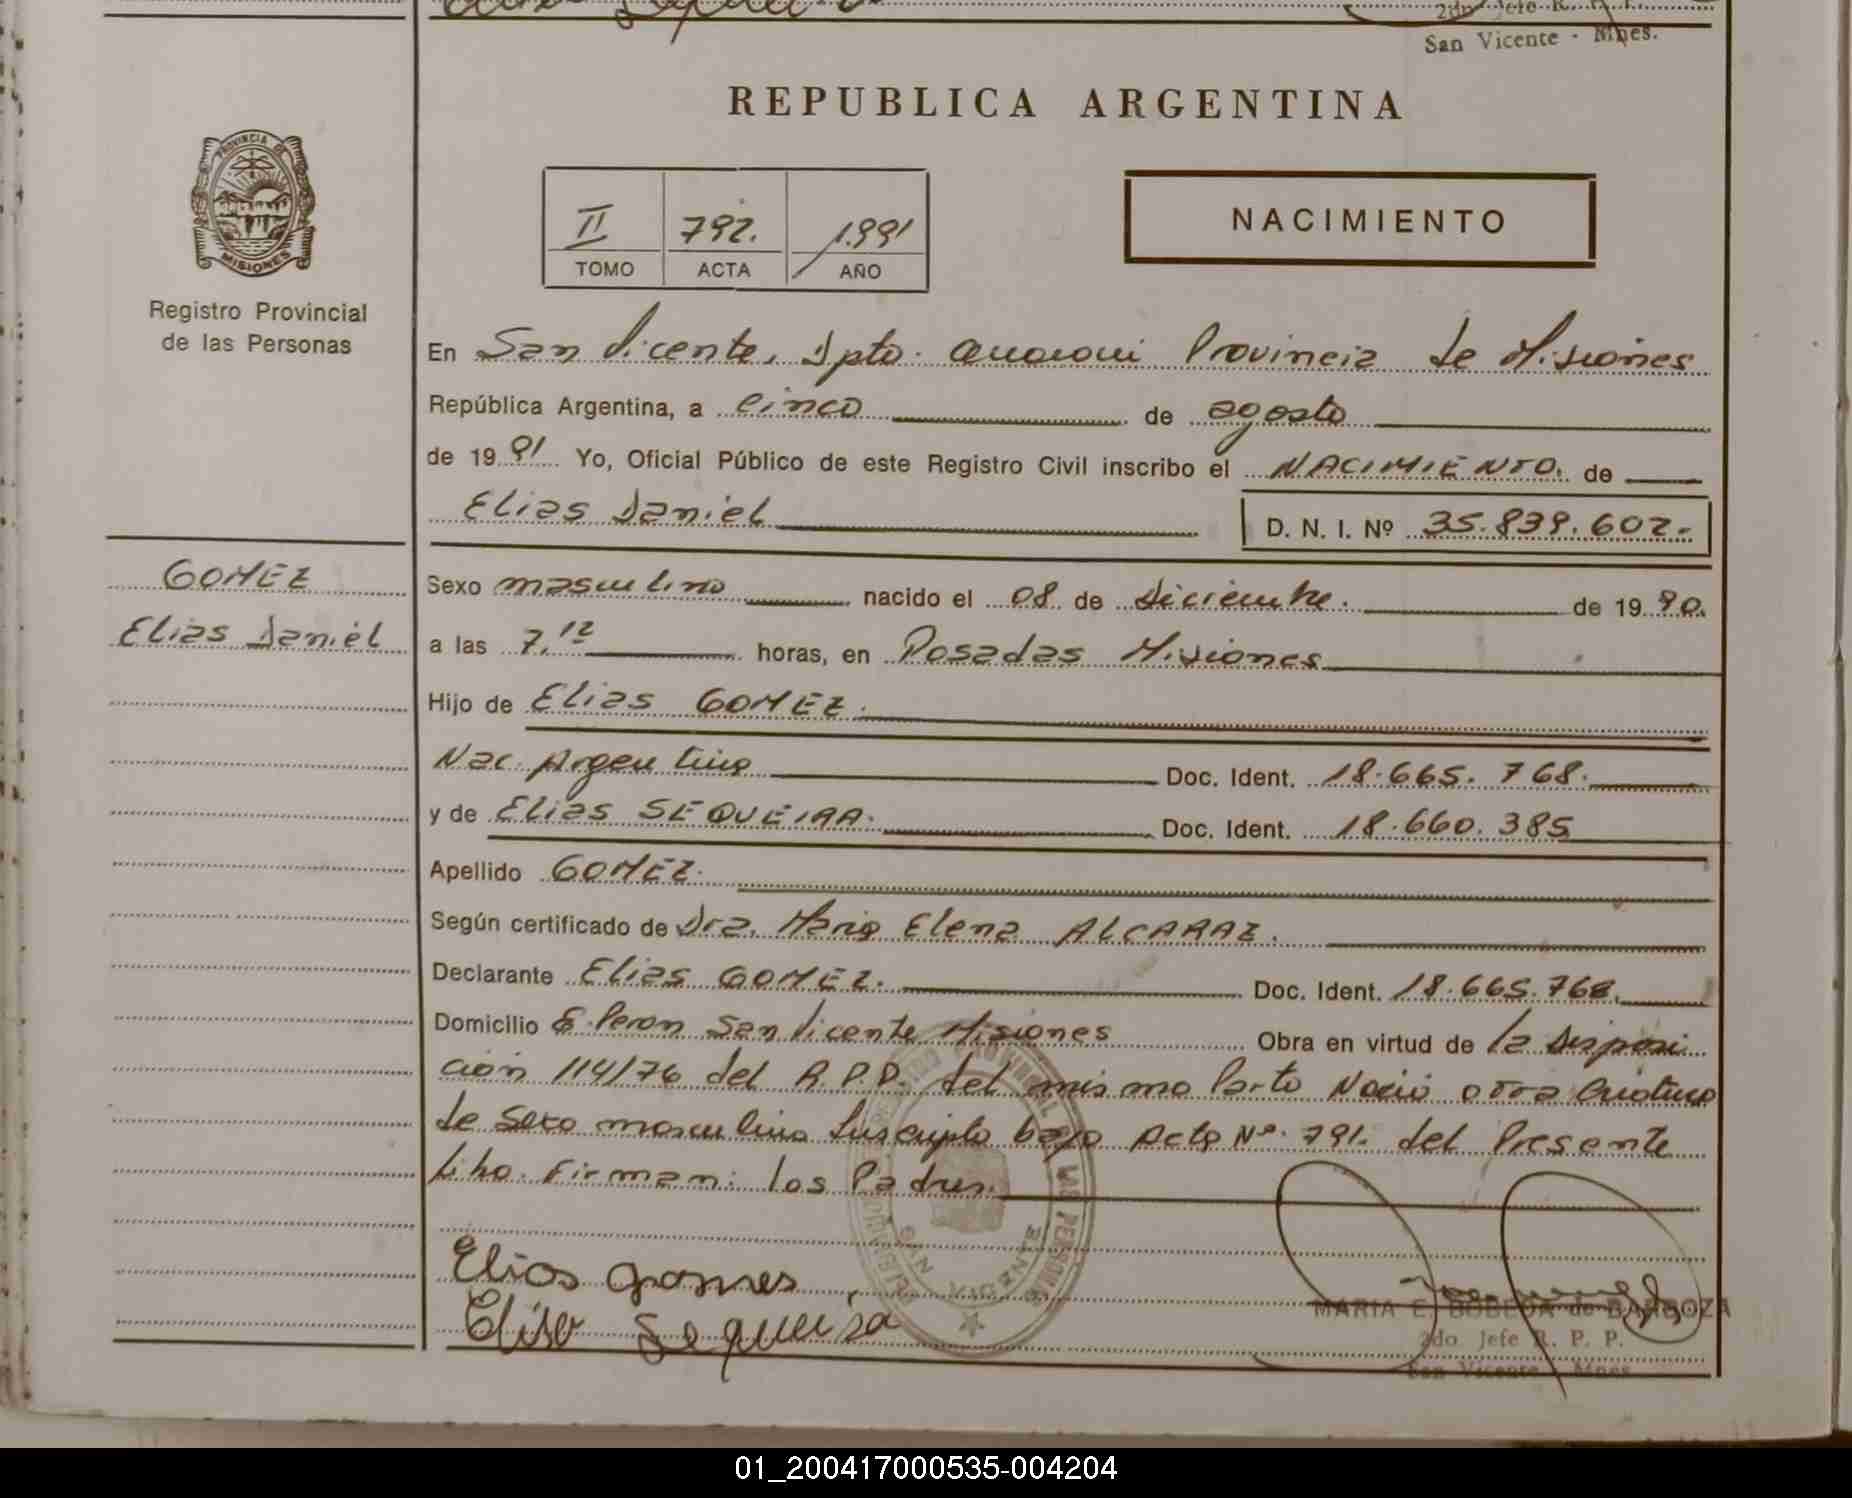 2do Jefe R. P. P.
San Vicente - Mnes.
REPUBLICA ARGENTINA
PROVINCIA DE
MISIONES
Registro Provincial
de las Personas
II 792. 1.991
TOMO ACTA AÑO
NACIMIENTO
En San Vicente, Dpto. Guarani Provincia de Misiones
República Argentina, a cinco de agosto
de 1991 Yo, Oficial Público de este Registro Civil inscribo el NACIMIENTO. de
Elias Daniel D. N. I. Nº 35.839.602.-
GOMEZ
Elias Daniel
Sexo masculino nacido el 08 de diciembre. de 1990.
a las 7,12 horas, en Posadas Misiones
Hijo de Elias GOMEZ.
Nac. Argentina Doc. Ident. 18.665.768.
y de Elias SEQUEIRA. Doc. Ident. 18.660.385
Apellido GOMEZ.
Según certificado de Dra. Maria Elena ALCARAZ.
Declarante Elias GOMEZ. Doc. Ident. 18.665.768.
Domicilio E. Peron San Vicente Misiones Obra en virtud de la disposi
ción 114/76 del R.P.P. del mismo Parto Nacio otra Criatura
de Sexo masculino Inscripto bajo Acta Nº 791. del Presente
Libro. Firman: los Padres.
Elias gomes
Elisa Sequeira
SAN VICENTE
MARIA E. BOBEDA de BARBOZA
2do. Jefe R. P. P.
San Vicente - Mnes.
01_200417000535-004204